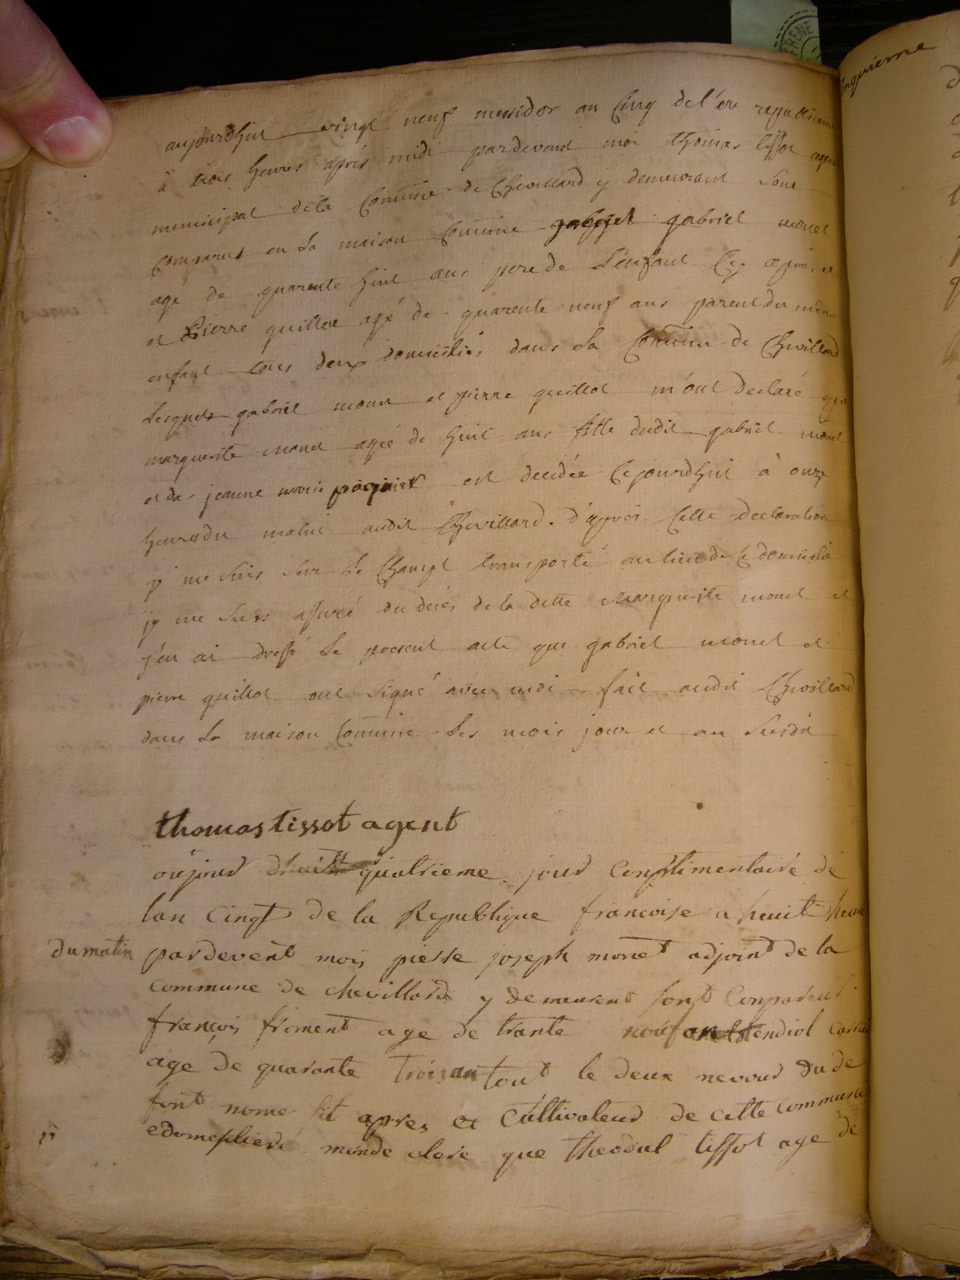 aujourdhui vingt neuf messidor an Cinq de l'ere republicaine
à trois heures après midi pardevant moi thomas tissot agent
municipal de la Commune de Chevillard y demeurant sont
Comparus en la maison Commune gabriel monet
agé de quarante huit ans pere de l'enfant Cy après
et Pierre quillot agé de quarente neuf ans parent du même
enfant tous deux domiciliés dans la Commune de Chevillard
Lesquels gabriel monet et pierre quillot m'ont declaré que
marguerite monet agée de huit ans fille dudit gabriel monet
et de jeanne marie est decidée Cejourdhui à onze
heures du matin audit Chevillard. d'après Cette declaration
je me suis sur Le Champt transporté au lieu de Ce domicile
je me suis assuré du deces de la ditte Marguerite monet et
j'en ai dressé Le present acte que gabriel monet et
pierre quillot ont signé avec moi fait audit Chevillard
dans La maison Commune Les mois jour et an susdit
thomas tissot agent
oujour quatrieme jour Conplimentaire de
lan Cingt de la Republique francoise a heuit heure
du matin
pardevent moy piesse joseph monet adjoint de la
commune de chevillard y demeurent sont Conpareu
françois friment age de trante neuf an
age de quarante trois an tout le deux
font nome sit apres et Cultivateur de cette commune
que tissot age de